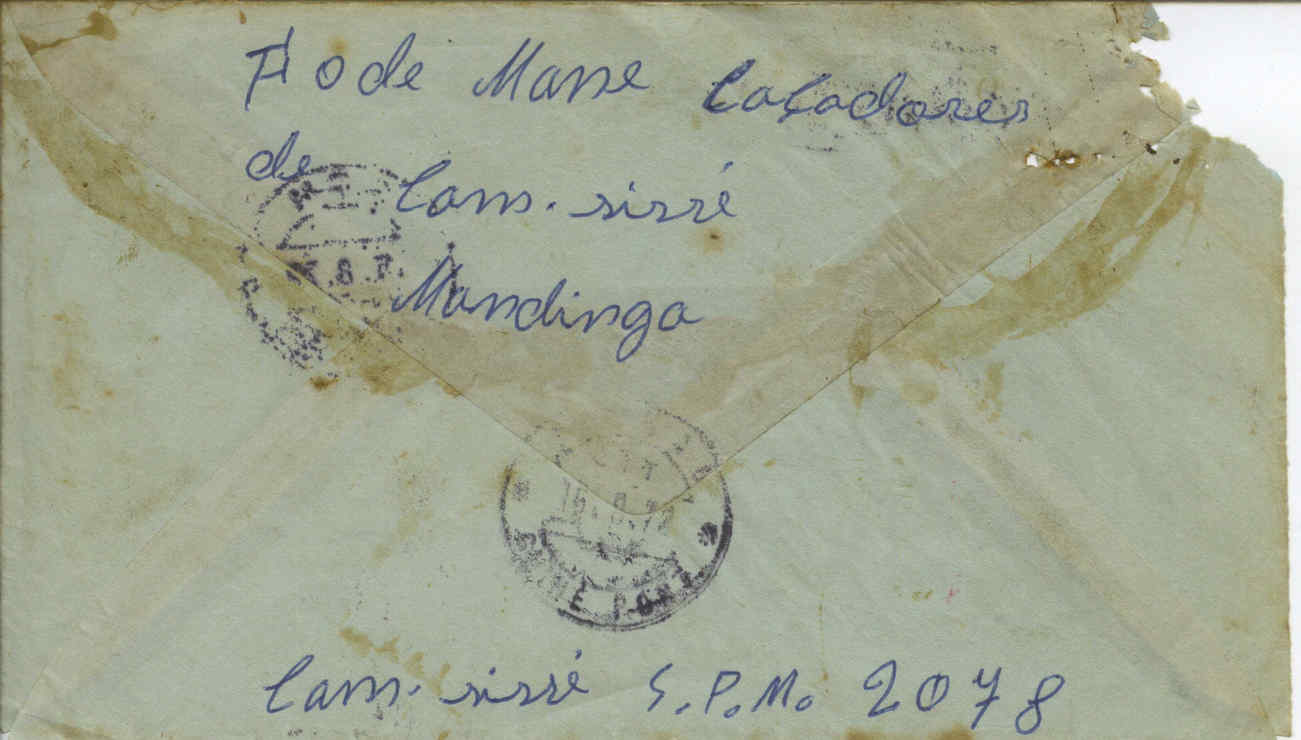 Fode Mane Caçadores
de Cam. sissé
Mandinga
GUINÉ PORT.
Cam. sissé S.P.M. 2078